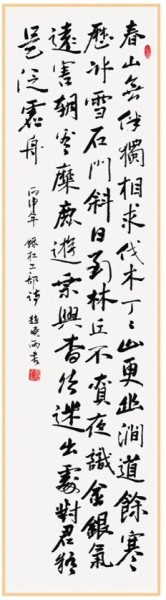 春山無伴獨相求伐木丁々山更幽澗道餘寒
歷冰雪石門斜日到林丘不貪夜識金銀氣
遠害朝看麋鹿遊乘興杳然迷出處對君疑
是泛虛舟
丙申年 錄杜工部詩 書